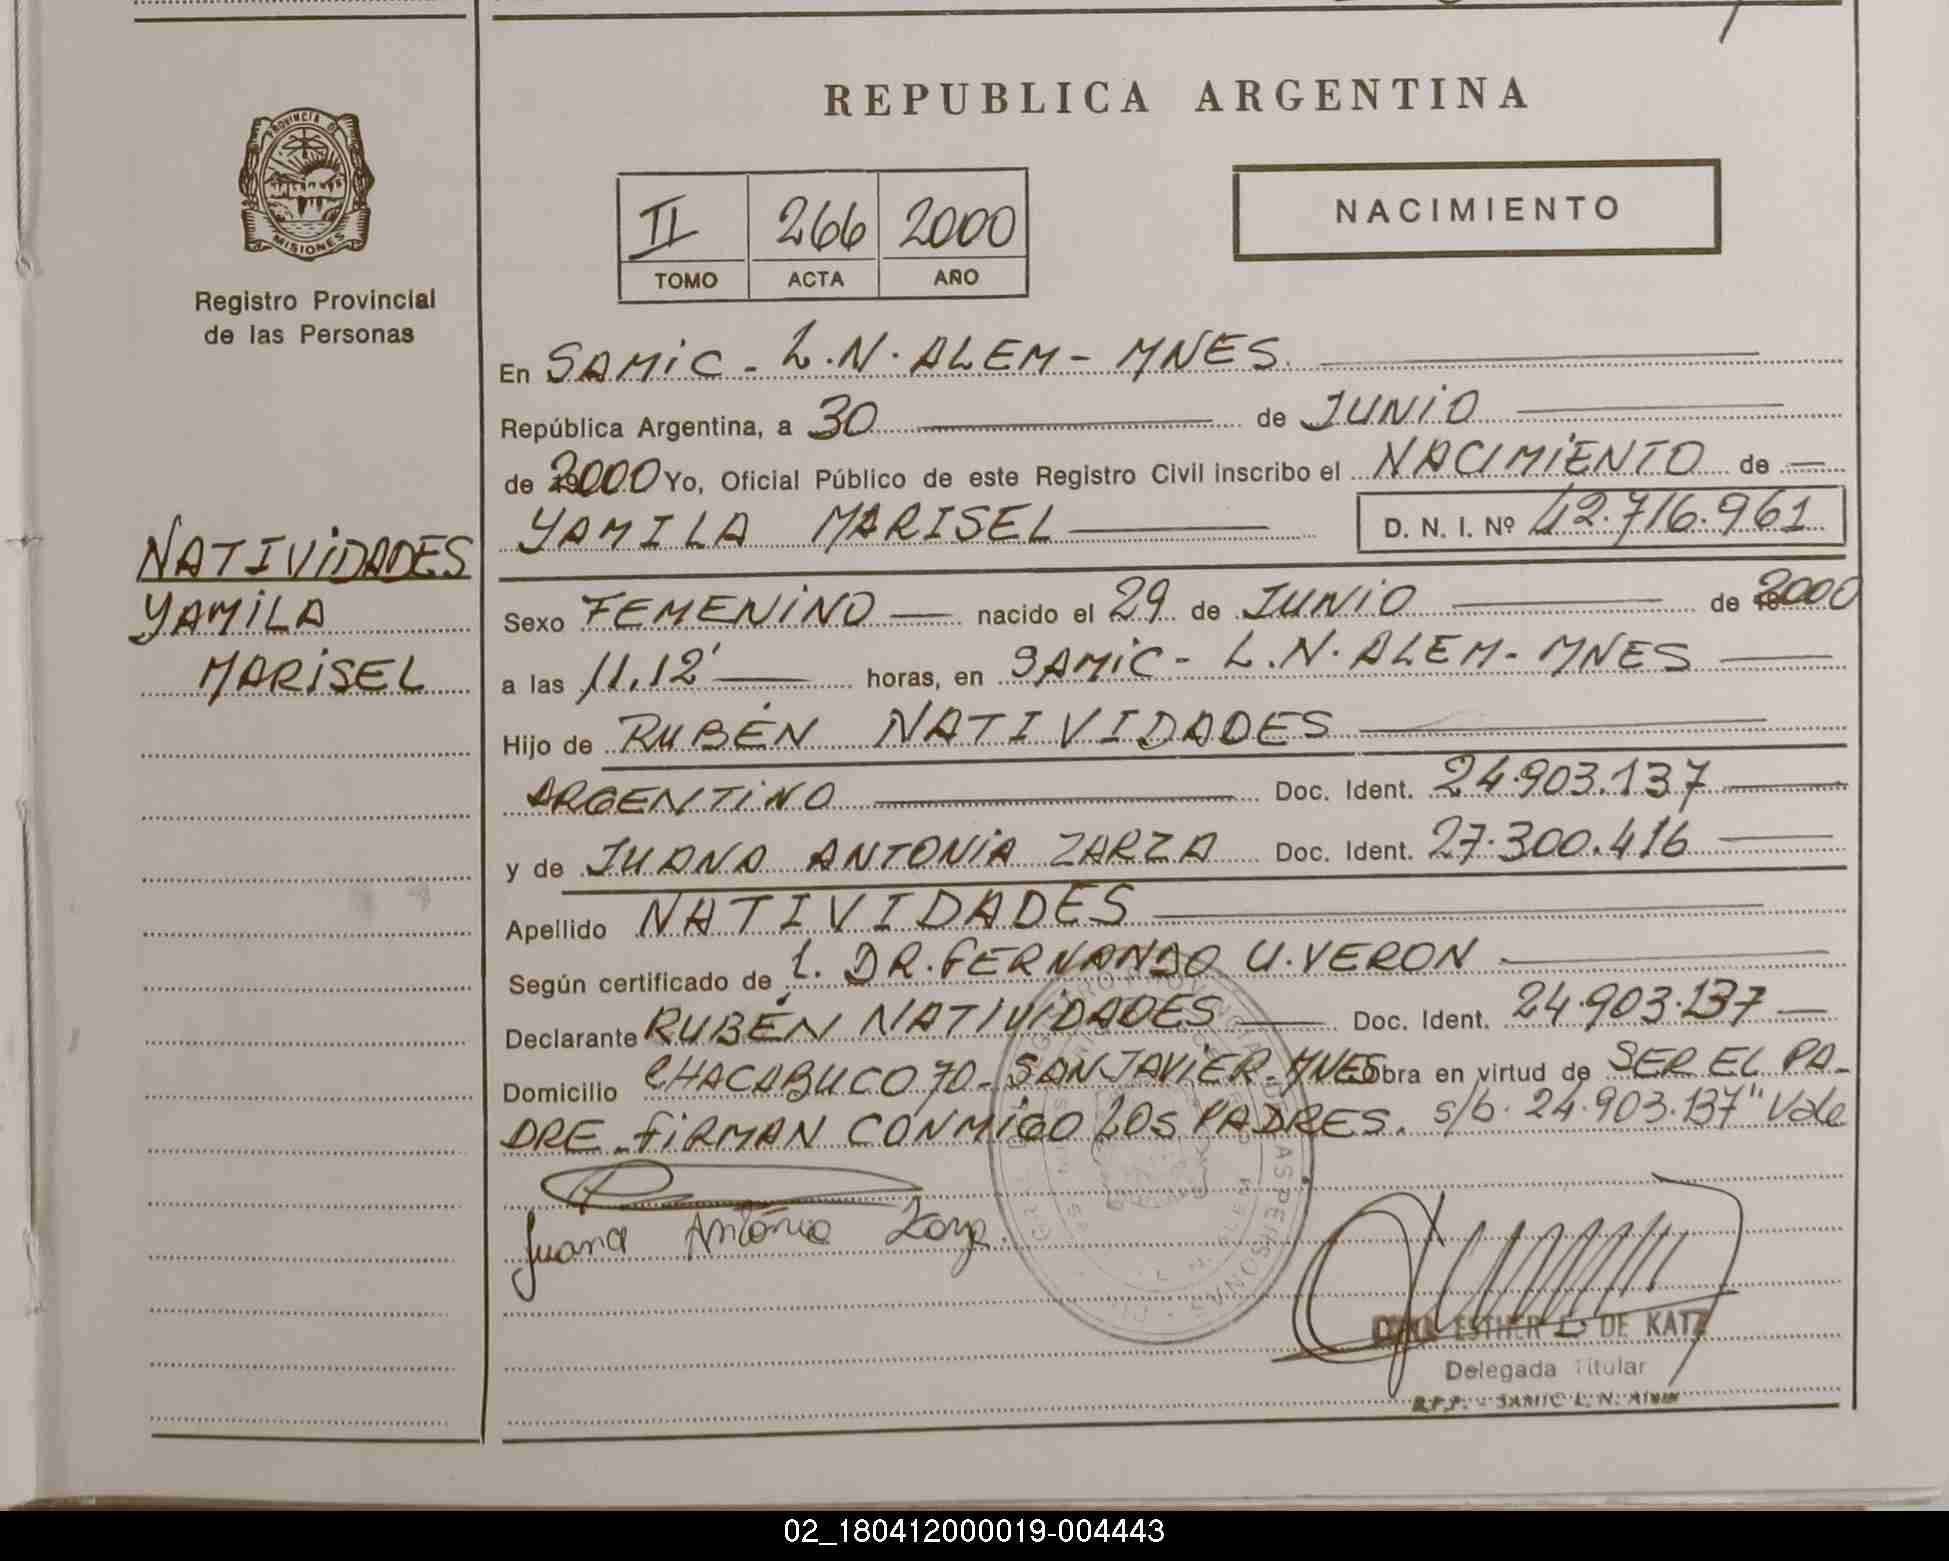 REPUBLICA ARGENTINA
PROVINCIA DE
MISIONES
Registro Provincial
de las Personas
II 266 2000
TOMO ACTA AÑO
NACIMIENTO
En SAMIC - L.N. ALEM - MNES.
República Argentina, a 30 de JUNIO
de 2000 Yo, Oficial Público de este Registro Civil inscribo el NACIMIENTO de
YAMILA MARISEL D. N. I. Nº 42.716.961
NATIVIDADES
YAMILA
MARISEL
Sexo FEMENINO nacido el 29 de JUNIO de 2000
a las 11.12' horas, en SAMIC - L.N. ALEM - MNES
Hijo de RUBÉN NATIVIDADES
ARGENTINO Doc. Ident. 24.903.137
y de JUANA ANTONIA ZARZA Doc. Ident. 27.300.416
Apellido NATIVIDADES
Según certificado de DR. FERNANDO U. VERON
Declarante RUBÉN NATIVIDADES Doc. Ident. 24.903.137
Domicilio CHACABUCO 70 - SAN JAVIER - MNES obra en virtud de SER EL PA-
DRE. FIRMAN CONMIGO LOS PADRES. s/b. 24.903.137" Vale
Juana Antonia Zarza.
ESTHER DE KATZ
Delegada Titular
R.P.P. - SAMIC L. N. Alem
02_180412000019-004443